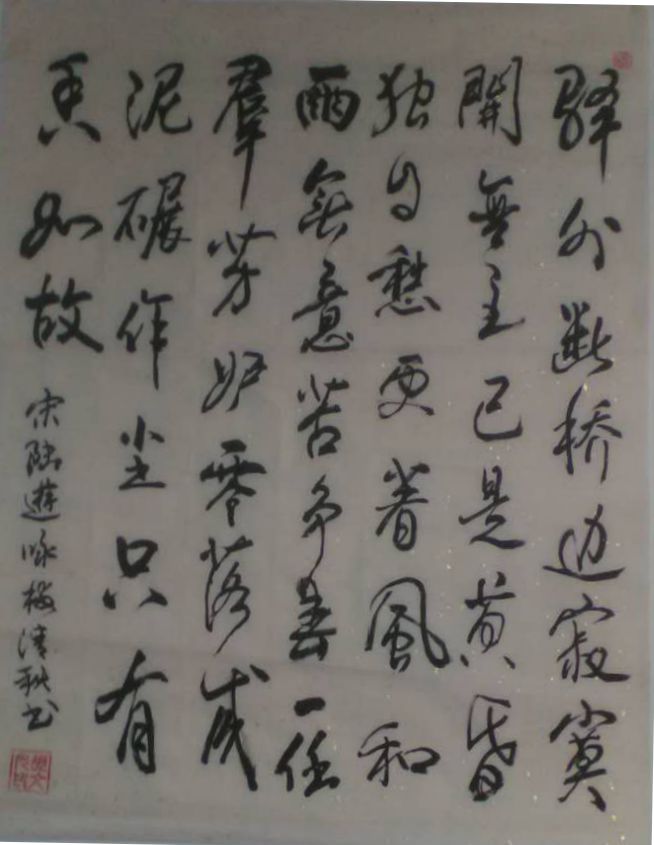 驿外断桥边寂寞
開無主已是黄昏
独自愁更着風和
雨無意苦争春一任
羣芳妒零落成
泥碾作尘只有
香如故
宋陸遊咏梅清秋书